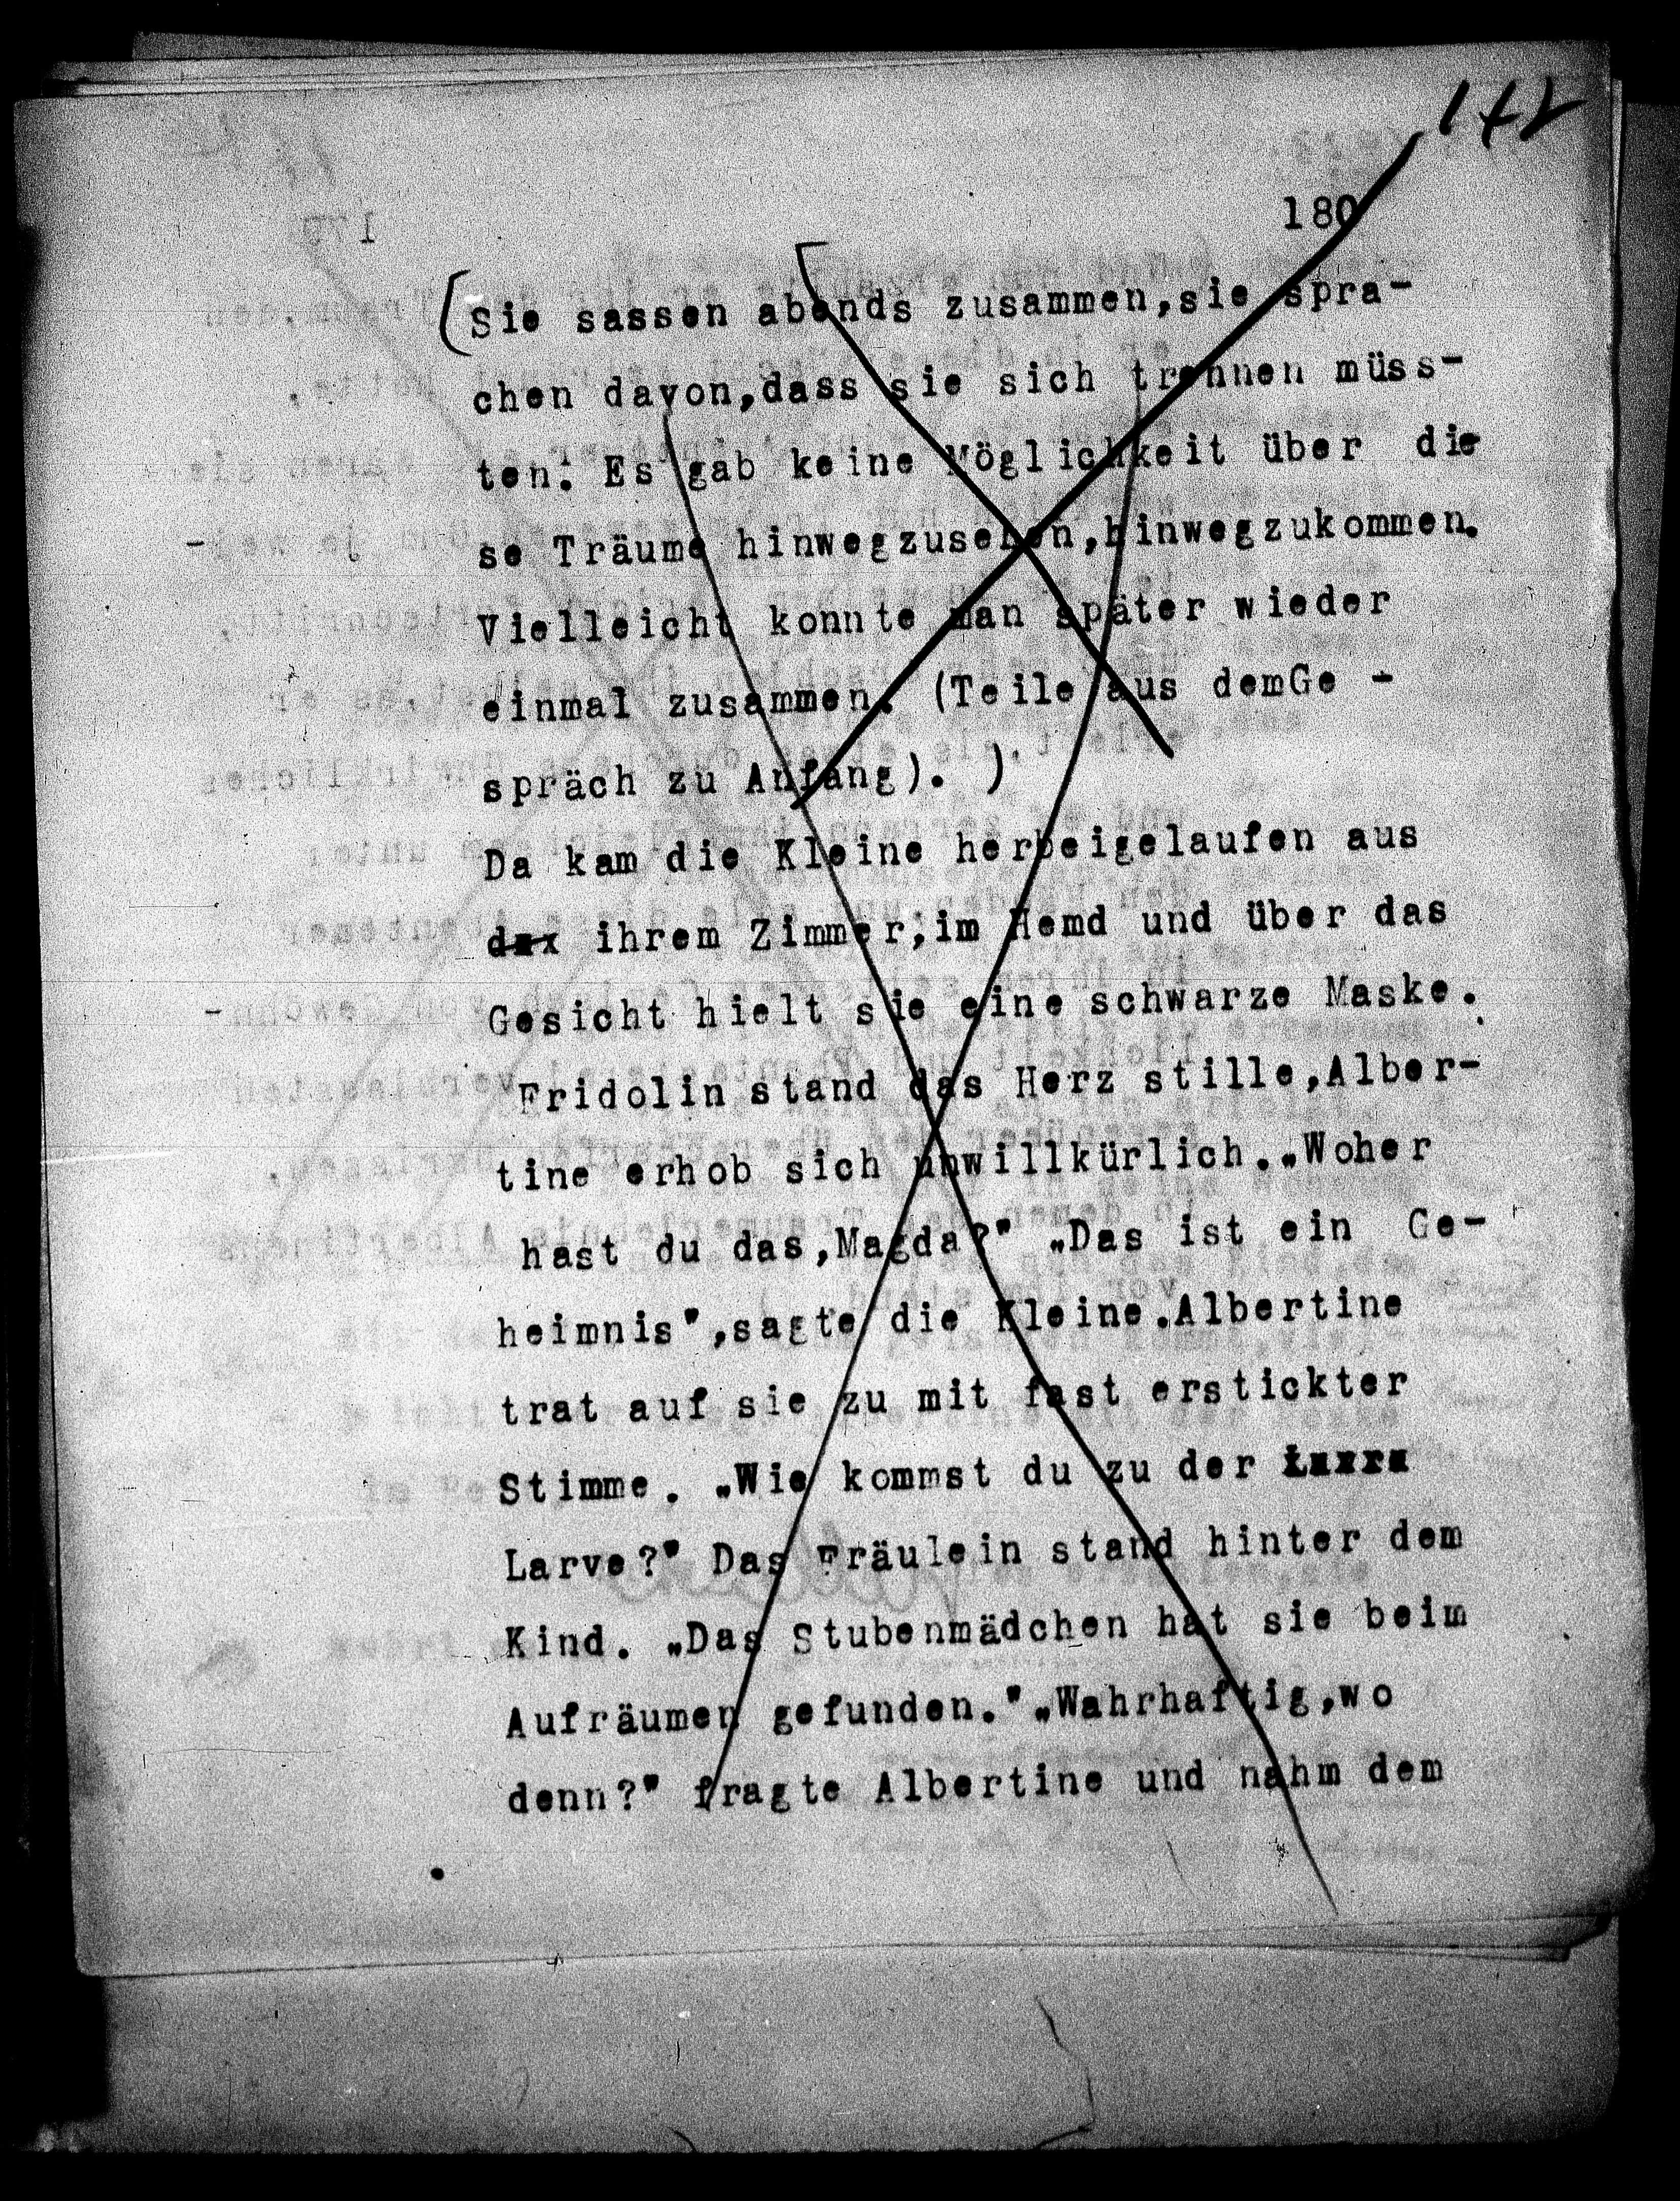 142
180
(Sie sassen abends zusammen,sie spra-
chen davon,dass sie sich trennen müss-
ten. Es gab keine Möglichkeit über die
se Träume hinwegzusehen,hinwegzukommen.
Vielleicht konnte man später wieder
einmal zusammen. (Teile aus demGe -
spräch zu Anfang). )
Da kam die Kleine herbeigelaufen aus
ihrem Zimmer,im Hemd und über das
Gesicht hielt sie eine schwarze Maske.
Fridolin stand das Herz stille,Alber-
tine erhob sich unwillkürlich. „Woher
hast du das,Magda?" „Das ist ein Ge-
heimnis",sagte die Kleine.Albertine
trat auf sie zu mit fast erstickter
Stimme. „Wie kommst du zu der
Larve?" Das Fräulein stand hinter dem
Kind. „Das Stubenmädchen hat sie beim
Aufräumen gefunden." „Wahrhaftig,wo
denn?" fragte Albertine und nahm dem